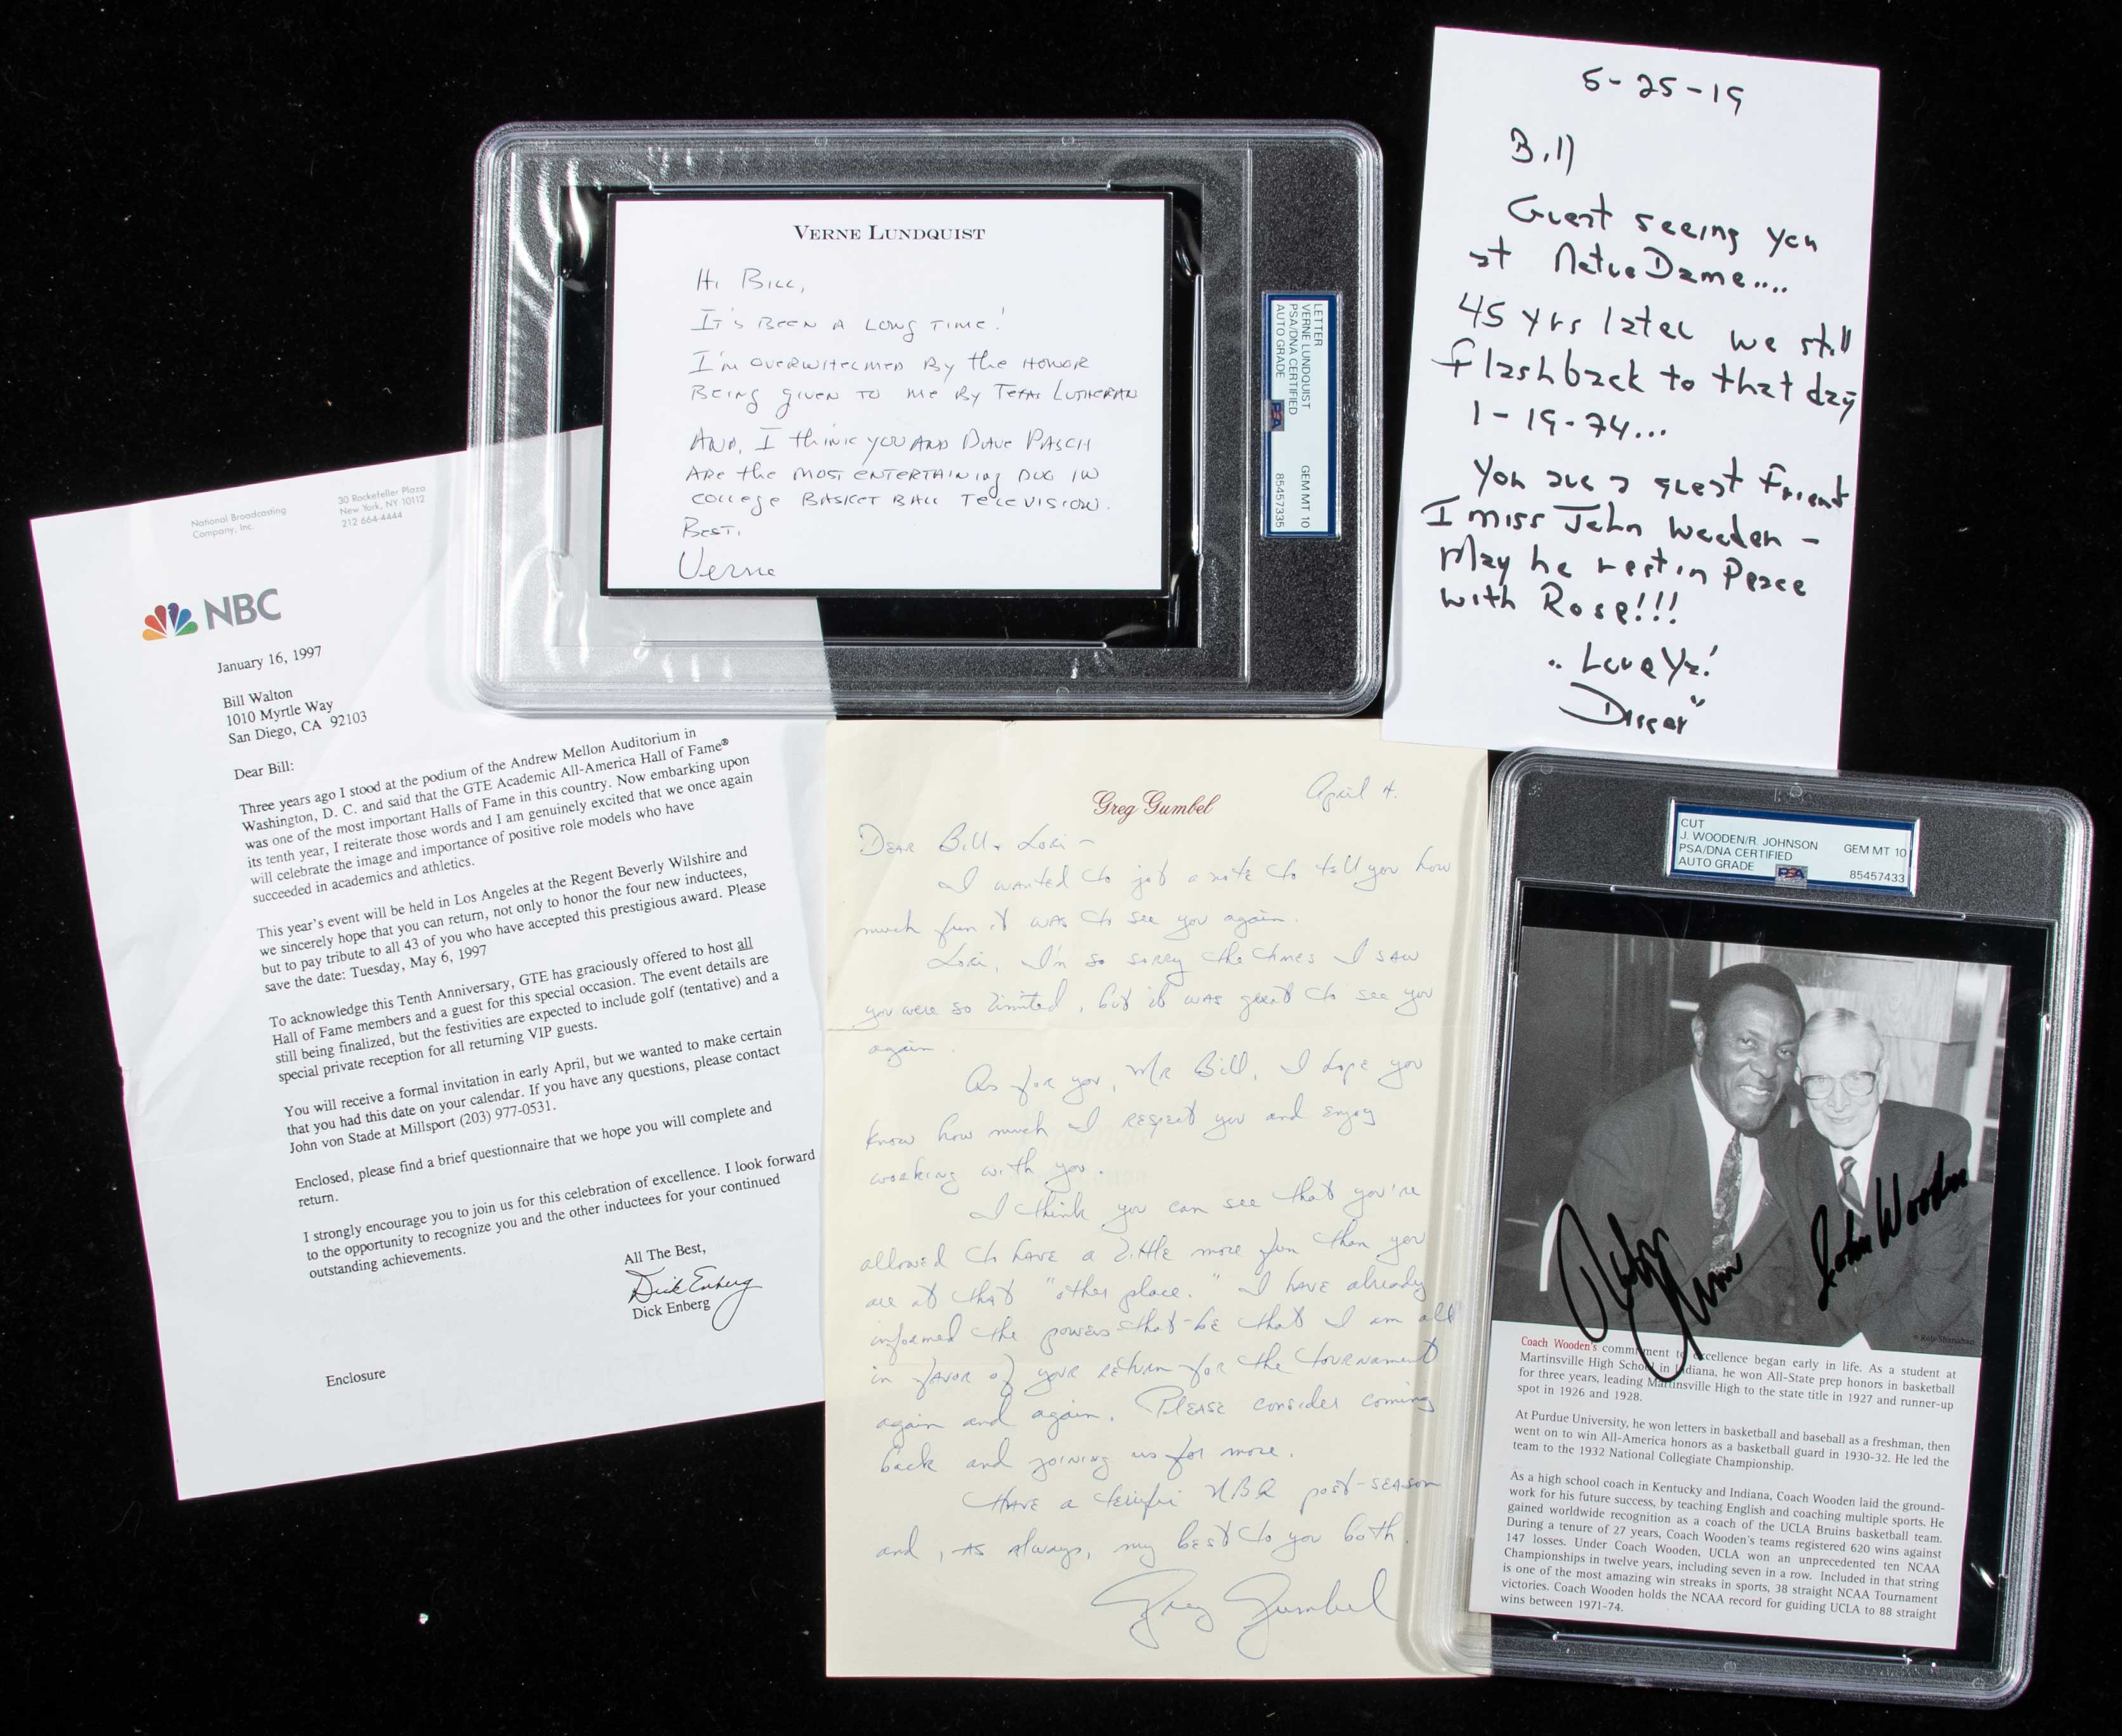 National Broadcasting
Company, Inc.
30 Rockefeller Plaza
New York, NY 10112
212 664-4444
NBC
January 16, 1997
Bill Walton
1010 Myrtle Way
San Diego, CA 92103
Dear Bill:
Three years ago I stood at the podium of the Andrew Mellon Auditorium in
Washington, D. C. and said that the GTE Academic All-America Hall of Fame®
was one of the most important Halls of Fame in this country. Now embarking upon
its tenth year, I reiterate those words and I am genuinely excited that we once again
will celebrate the image and importance of positive role models who have
succeeded in academics and athletics.
This year's event will be held in Los Angeles at the Regent Beverly Wilshire and
we sincerely hope that you can return, not only to honor the four new inductees,
but to pay tribute to all 43 of you who have accepted this prestigious award. Please
save the date: Tuesday, May 6, 1997
To acknowledge this Tenth Anniversary, GTE has graciously offered to host all
Hall of Fame members and a guest for this special occasion. The event details are
still being finalized, but the festivities are expected to include golf (tentative) and a
special private reception for all returning VIP guests.
You will receive a formal invitation in early April, but we wanted to make certain
that you had this date on your calendar. If you have any questions, please contact
John von Stade at Millsport (203) 977-0531.
Enclosed, please find a brief questionnaire that we hope you will complete and
return.
I strongly encourage you to join us for this celebration of excellence. I look forward
to the opportunity to recognize you and the other inductees for your continued
outstanding achievements.
All The Best,
Dick Enberg
Dick Enberg
Enclosure
VERNE LUNDQUIST
Hi Bill,
It's been a long time!
I'm overwhelmed by the honor
being given to me by Texas Lutheran
And, I think you and Dave Pasch
are the most entertaining duo in
college basket ball television.
Best,
Verne
LETTER
VERNE LUNDQUIST
PSA/DNA CERTIFIED
AUTO GRADE
GEM MT 10
PSA
85457335
5-25-19
Bill
Great seeing you
at Notre Dame....
45 yrs later we still
flashback to that day
1-19-74...
You are a great friend
I miss John Wooden -
May he rest in Peace
with Rose!!!
.. Love Ya!
Digger"
Greg Gumbel
April 4.
Dear Bill + Lori -
I wanted to jot a note to tell you how
much fun it was to see you again.
Lori, I'm so sorry the times I saw
you were so limited, but it was great to see you
again.
As for you, Mr Bill, I hope you
know how much I respect you and enjoy
working with you.
I think you can see that you're
allowed to have a little more fun than you
are at that "other place." I have already
informed the powers-that-be that I am all
in favor of your return for the tournament
again and again. Please consider coming
back and joining us for more.
Have a terrific NBA post-season
and, as always, my best to you both.
Greg Gumbel
CUT
J. WOODEN/R. JOHNSON
PSA/DNA CERTIFIED
AUTO GRADE
PSA
GEM MT 10
85457433
John Wooden
© Rob Shanahan
Coach Wooden's commitment to excellence began early in life. As a student at
Martinsville High School in Indiana, he won All-State prep honors in basketball
for three years, leading Martinsville High to the state title in 1927 and runner-up
spot in 1926 and 1928.
At Purdue University, he won letters in basketball and baseball as a freshman, then
went on to win All-America honors as a basketball guard in 1930-32. He led the
team to the 1932 National Collegiate Championship.
As a high school coach in Kentucky and Indiana, Coach Wooden laid the ground-
work for his future success, by teaching English and coaching multiple sports. He
gained worldwide recognition as a coach of the UCLA Bruins basketball team.
During a tenure of 27 years, Coach Wooden's teams registered 620 wins against
147 losses. Under Coach Wooden, UCLA won an unprecedented ten NCAA
Championships in twelve years, including seven in a row. Included in that string
is one of the most amazing win streaks in sports, 38 straight NCAA Tournament
victories. Coach Wooden holds the NCAA record for guiding UCLA to 88 straight
wins between 1971-74.